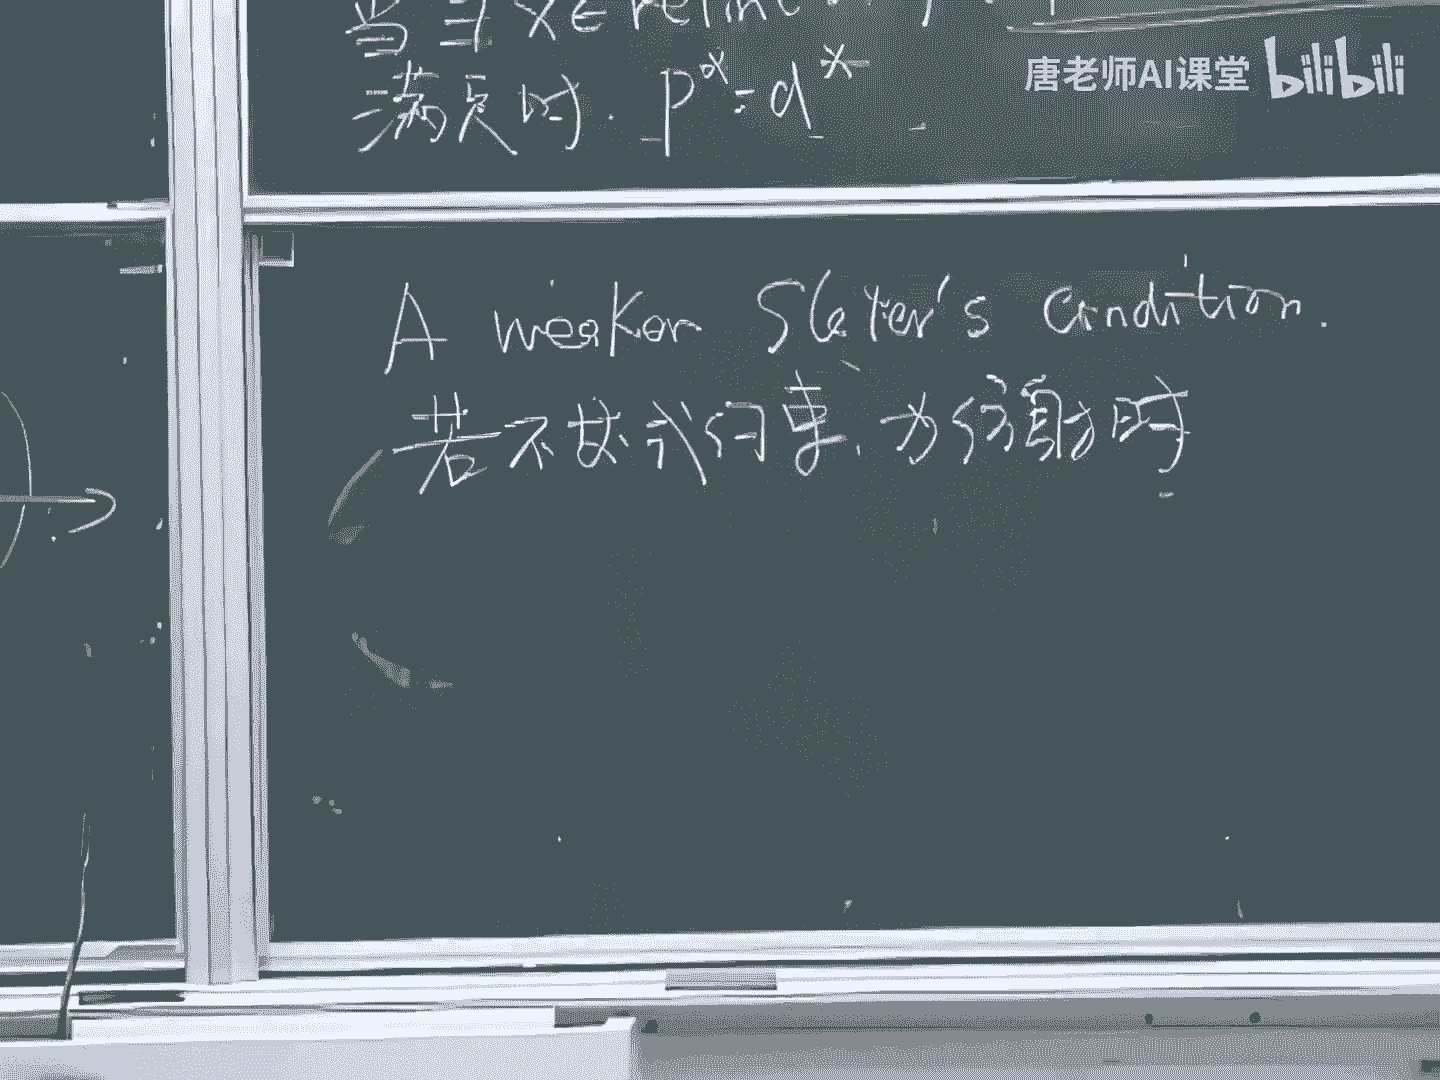 当 ∃ x ∈ relint
满足时. p* = d*
唐老师AI课堂 bilibili
A weaker Slater's Condition.
若不等式约束, 为仿射时